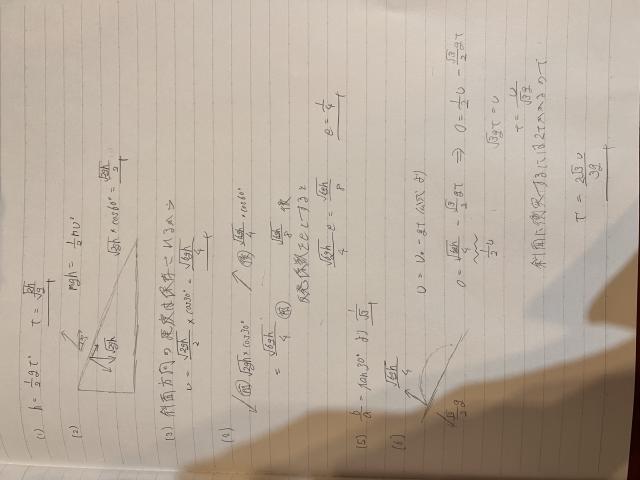 (1) h = 1/2 gt² t = √(2h/g)
(2) mgh = 1/2 mv²
√2gh
√2gh × cos60° = √2gh/2
(3) 斜面方向の速度は保存しているから
v = √2gh/2 × cos30° = √6gh/4
(4) 前 √2gh × cos30° 後 √6gh/4 × cos60°
= √6gh/4 前 √6gh/8 後
反発係数をeとすると
√6gh/4 e = √6gh/8 e = 1/4
(5) b/a = tan30° より 1/√3
(6) √6gh/4
√3/2 g
v = v₀ - gt 公式より
0 = √6gh/4 - √3/2 gt ⇒ 0 = 1/2 v - √3/2 gt
1/2 v
√3 gt = v
t = v/√3g
斜面に衝突するには2tかかるので
T = 2√3 v/3g